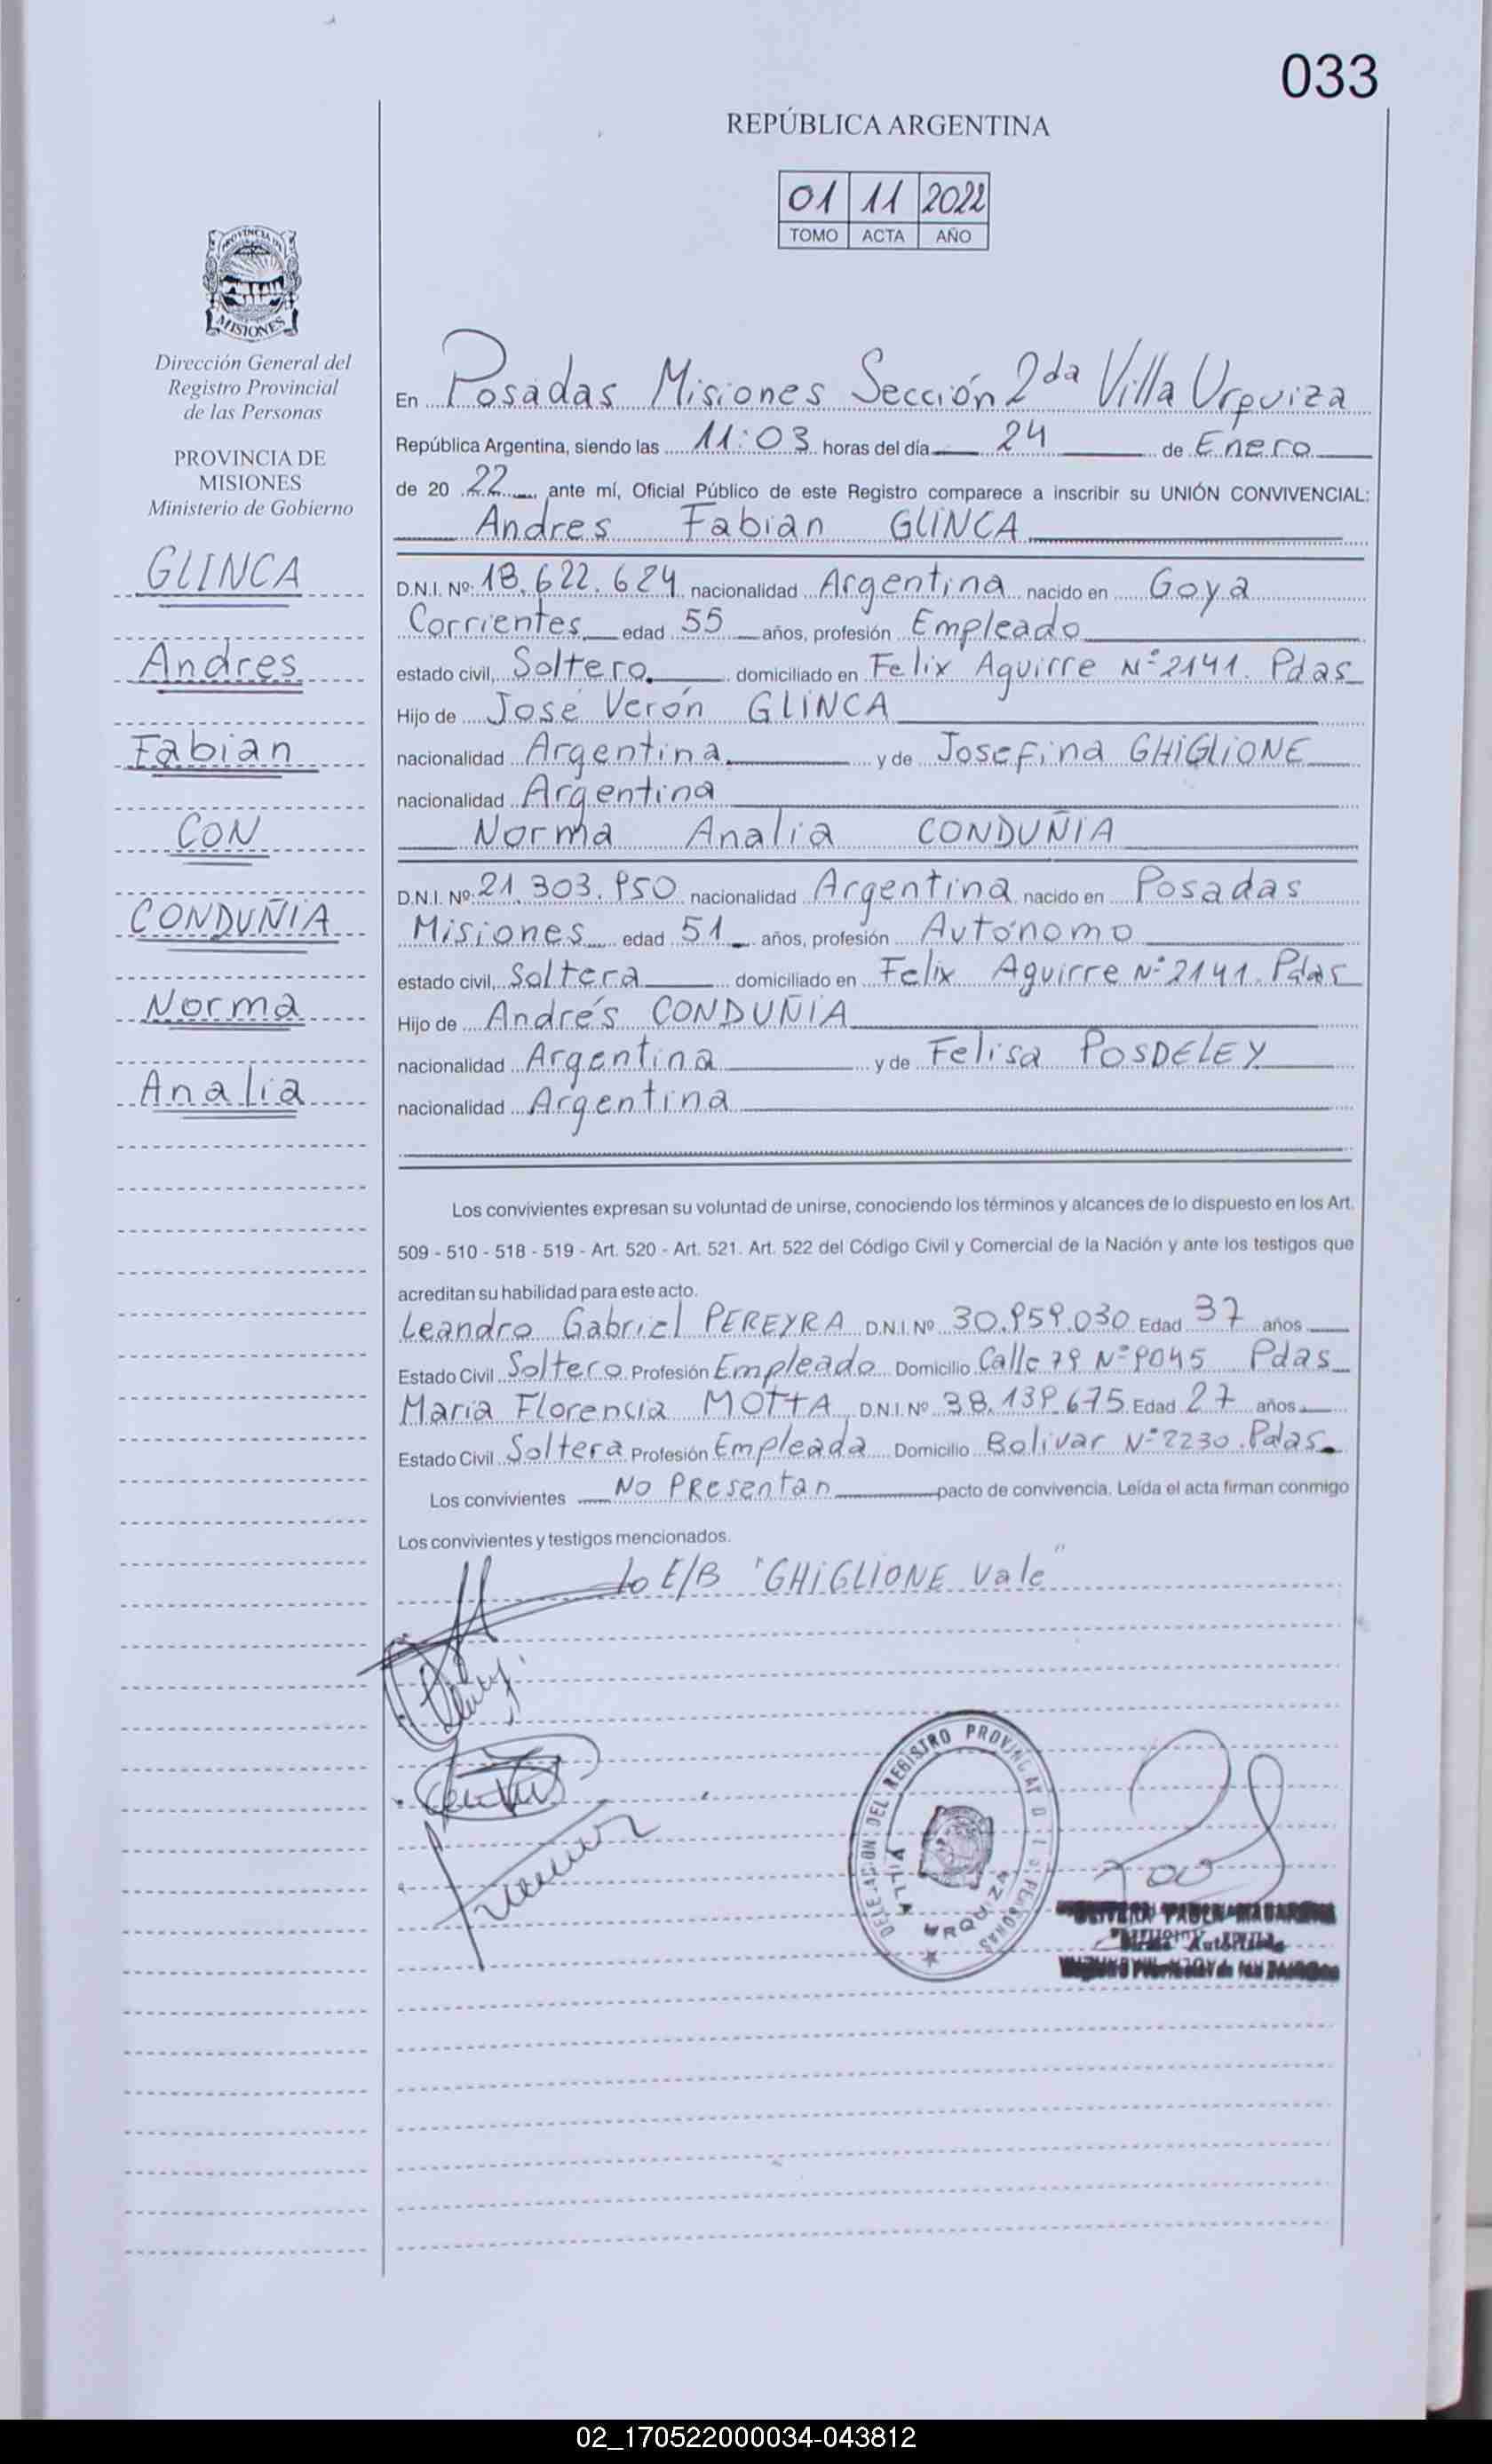 033
REPÚBLICA ARGENTINA
01 11 2022
TOMO ACTA AÑO
PROVINCIA DE
MISIONES
Dirección General del
Registro Provincial
de las Personas
PROVINCIA DE
MISIONES
Ministerio de Gobierno
GLINCA
Andres
Fabian
CON
CONDUÑIA
Norma
Analia
En Posadas Misiones Sección 2da Villa Urquiza
República Argentina, siendo las 11:03 horas del día 24 de Enero
de 20 22 ante mí, Oficial Público de este Registro comparece a inscribir su UNIÓN CONVIVENCIAL:
Andres Fabian GLINCA
D.N.I. Nº: 18.622.624 nacionalidad Argentina nacido en Goya
Corrientes edad 55 años, profesión Empleado
estado civil, Soltero domiciliado en Felix Aguirre Nº 2141. Pdas
Hijo de José Verón GLINCA
nacionalidad Argentina y de Josefina GHIGLIONE
nacionalidad Argentina
Norma Analia CONDUÑIA
D.N.I. Nº: 21.303.950 nacionalidad Argentina nacido en Posadas
Misiones edad 51 años, profesión Autónomo
estado civil, Soltera domiciliado en Felix Aguirre Nº 2141. Pdas
Hijo de Andrés CONDUÑIA
nacionalidad Argentina y de Felisa POSDELEY
nacionalidad Argentina
Los convivientes expresan su voluntad de unirse, conociendo los términos y alcances de lo dispuesto en los Art.
509 - 510 - 518 - 519 - Art. 520 - Art. 521. Art. 522 del Código Civil y Comercial de la Nación y ante los testigos que
acreditan su habilidad para este acto.
Leandro Gabriel PEREYRA D.N.I. Nº 30.959.030 Edad 37 años
Estado Civil Soltero Profesión Empleado Domicilio Calle 79 Nº 9045 Pdas
Maria Florencia MOTTA D.N.I. Nº 38.139.675 Edad 27 años
Estado Civil Soltera Profesión Empleada Domicilio Bolivar Nº 2230. Pdas
Los convivientes No PResentan pacto de convivencia. Leída el acta firman conmigo
Los convivientes y testigos mencionados.
lo E/B "GHIGLIONE Vale"
DELEGACION DEL REGISTRO PROVINCIAL DE LAS PERSONAS
VILLA URQUIZA
02_170522000034-043812